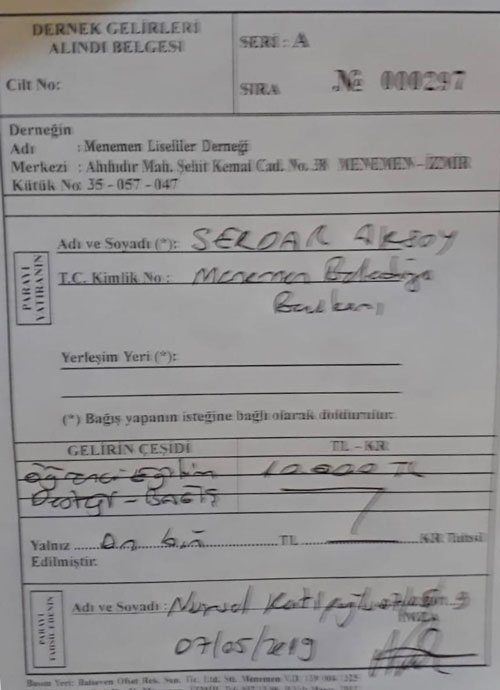 DERNEK GELİRLERİ
ALINDI BELGESİ
SERİ : A
Cilt No:
SIRA № 000297
Derneğin
Adı : Menemen Liseliler Derneği
Merkezi : Ahıhıdır Mah. Şehit Kemal Cad. No. 38 MENEMEN - İZMİR
Kütük No: 35 - 057 - 047
PARAYI
YATIRANIN
Adı ve Soyadı (*): SERDAR AKSOY
T.C. Kimlik No : Menemen Belediye
Başkanı
Yerleşim Yeri (*):
(*) Bağış yapanın isteğine bağlı olarak doldurulur.
GELİRİN ÇEŞİDİ TL - KR
Öğrenci Eğitim 10.000 TL
Desteği - Bağış
Yalnız On bin TL KR Tahsil
Edilmiştir.
PARAYI
TAHSİL EDENİN
Adı ve Soyadı : Nursel
07/05/2019
İMZA
Basım Yeri: Ofset Tic. Ltd. Şti. Menemen V.D.